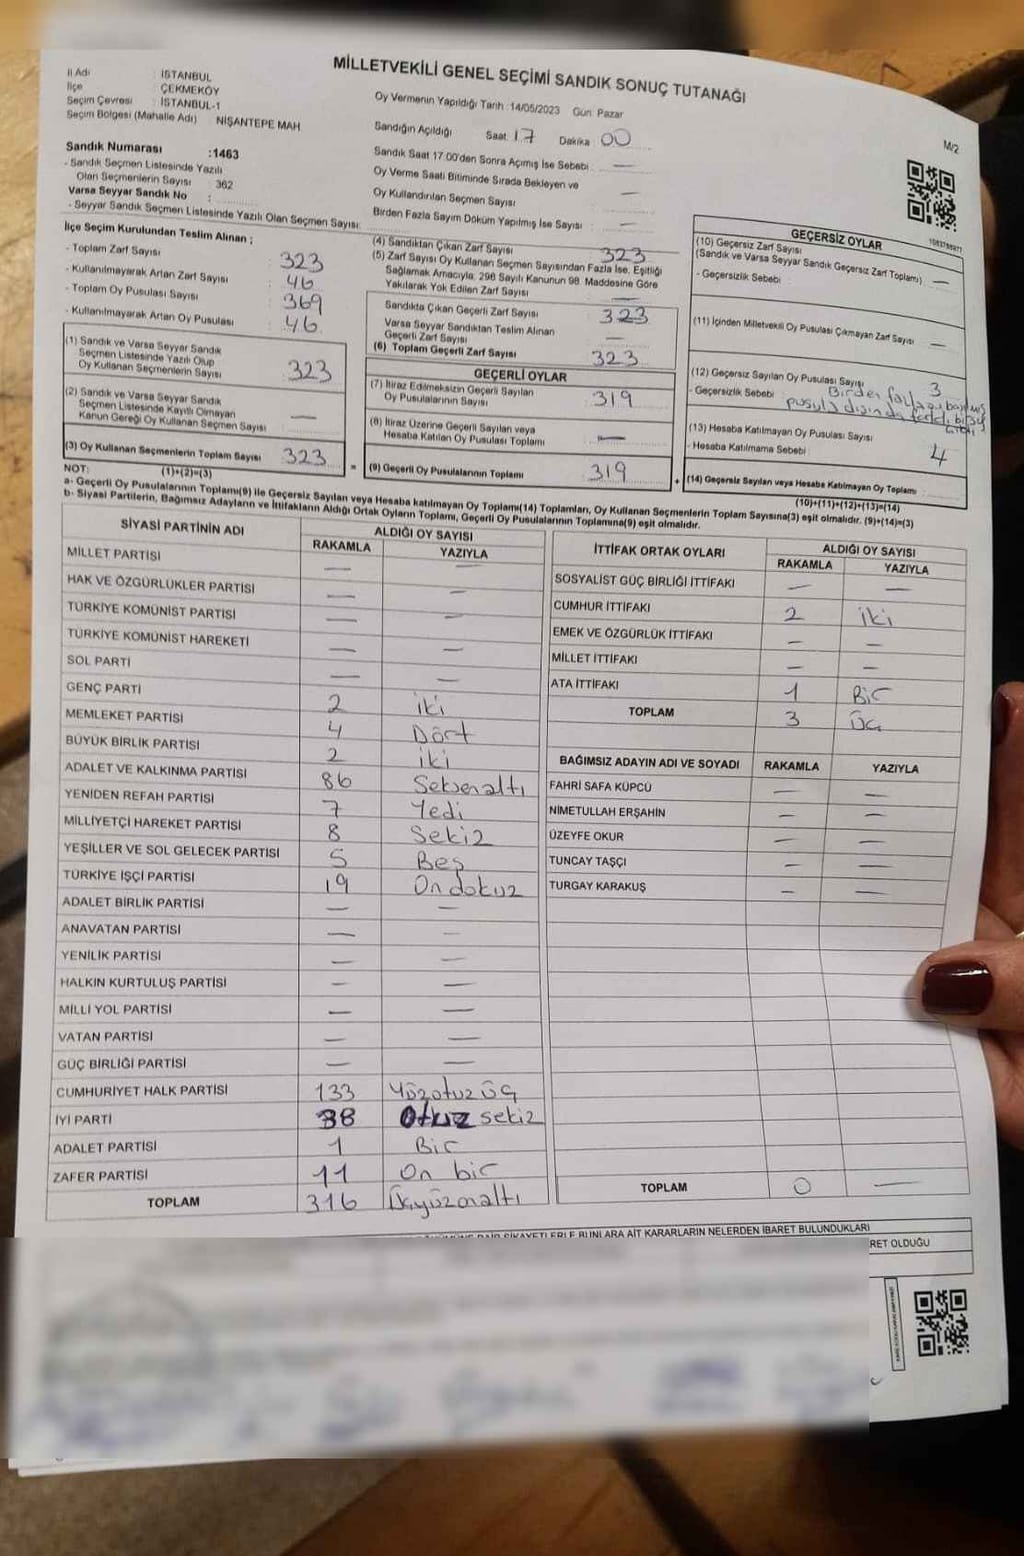 MİLLETVEKİLİ GENEL SEÇİMİ SANDIK SONUÇ TUTANAĞI
İl Adı : İSTANBUL
İlçe : ÇEKMEKÖY
Seçim Çevresi : İSTANBUL-1
Seçim Bölgesi (Mahalle Adı) NİŞANTEPE MAH
Sandık Numarası :1463
- Sandık Seçmen Listesinde Yazılı
Olan Seçmenlerin Sayısı : 362
Varsa Seyyar Sandık No :
- Seyyar Sandık Seçmen Listesinde Yazılı Olan Seçmen Sayısı:
Oy Vermenin Yapıldığı Tarih :14/05/2023 Gün: Pazar
Sandığın Açıldığı Saat 17 Dakika 00
Sandık Saat 17:00'den Sonra Açılmış İse Sebebi : —
Oy Verme Saati Bitiminde Sırada Bekleyen ve
Oy Kullandırılan Seçmen Sayısı —
Birden Fazla Sayım Döküm Yapılmış İse Sayısı : —
M/2
İlçe Seçim Kurulundan Teslim Alınan ;
- Toplam Zarf Sayısı : 323
- Kullanılmayarak Artan Zarf Sayısı : 46
- Toplam Oy Pusulası Sayısı : 369
- Kullanılmayarak Artan Oy Pusulası : 46
(1) Sandık ve Varsa Seyyar Sandık
Seçmen Listesinde Yazılı Olup
Oy Kullanan Seçmenlerin Sayısı : 323
(2) Sandık ve Varsa Seyyar Sandık
Seçmen Listesinde Kayıtlı Olmayan
Kanun Gereği Oy Kullanan Seçmen Sayısı : —
(3) Oy Kullanan Seçmenlerin Toplam Sayısı : 323
(4) Sandıktan Çıkan Zarf Sayısı 323
(5) Zarf Sayısı Oy Kullanan Seçmen Sayısından Fazla İse, Eşitliği
Sağlamak Amacıyla; 298 Sayılı Kanunun 98. Maddesine Göre
Yakılarak Yok Edilen Zarf Sayısı : —
Sandıkta Çıkan Geçerli Zarf Sayısı : 323
Varsa Seyyar Sandıktan Teslim Alınan
Geçerli Zarf Sayısı : —
(6) Toplam Geçerli Zarf Sayısı : 323
GEÇERLİ OYLAR
(7) İtiraz Edilmeksizin Geçerli Sayılan
Oy Pusulalarının Sayısı : 319
(8) İtiraz Üzerine Geçerli Sayılan veya
Hesaba Katılan Oy Pusulası Toplamı : —
= (9) Geçerli Oy Pusulalarının Toplamı : 319
GEÇERSİZ OYLAR
(10) Geçersiz Zarf Sayısı
(Sandık ve Varsa Seyyar Sandık Geçersiz Zarf Toplamı) : —
- Geçersizlik Sebebi :
(11) İçinden Milletvekili Oy Pusulası Çıkmayan Zarf Sayısı : —
(12) Geçersiz Sayılan Oy Pusulası Sayısı : 3
- Geçersizlik Sebebi : Birden fazla
(13) Hesaba Katılmayan Oy Pusulası Sayısı : 4
- Hesaba Katılmama Sebebi :
+ (14) Geçersiz Sayılan veya Hesaba Katılmayan Oy Toplamı :
(10)+(11)+(12)+(13)=(14)
NOT: (1)+(2)=(3)
a- Geçerli Oy Pusulalarının Toplamı(9) ile Geçersiz Sayılan veya Hesaba katılmayan Oy Toplamı(14) Toplamları, Oy Kullanan Seçmenlerin Toplam Sayısına(3) eşit olmalıdır. (9)+(14)=(3)
b- Siyasi Partilerin, Bağımsız Adayların ve İttifakların Aldığı Ortak Oyların Toplamı, Geçerli Oy Pusulalarının Toplamına(9) eşit olmalıdır.
SİYASİ PARTİNİN ADI ALDIĞI OY SAYISI
RAKAMLA YAZIYLA
MİLLET PARTİSİ —
HAK VE ÖZGÜRLÜKLER PARTİSİ — —
TÜRKİYE KOMÜNİST PARTİSİ — —
TÜRKİYE KOMÜNİST HAREKETİ — —
SOL PARTİ — —
GENÇ PARTİ 2 iki
MEMLEKET PARTİSİ 4 Dört
BÜYÜK BİRLİK PARTİSİ 2 iki
ADALET VE KALKINMA PARTİSİ 86 Seksenaltı
YENİDEN REFAH PARTİSİ 7 Yedi
MİLLİYETÇİ HAREKET PARTİSİ 8 Sekiz
YEŞİLLER VE SOL GELECEK PARTİSİ 5 Beş
TÜRKİYE İŞÇİ PARTİSİ 19 On dokuz
ADALET BİRLİK PARTİSİ — —
ANAVATAN PARTİSİ — —
YENİLİK PARTİSİ — —
HALKIN KURTULUŞ PARTİSİ — —
MİLLİ YOL PARTİSİ — —
VATAN PARTİSİ — —
GÜÇ BİRLİĞİ PARTİSİ — —
CUMHURİYET HALK PARTİSİ 133 Yüzotuz üç
İYİ PARTİ 38 Otuz sekiz
ADALET PARTİSİ 1 Bir
ZAFER PARTİSİ 11 On bir
TOPLAM 316 Üçyüzonaltı
İTTİFAK ORTAK OYLARI ALDIĞI OY SAYISI
RAKAMLA YAZIYLA
SOSYALİST GÜÇ BİRLİĞİ İTTİFAKI — —
CUMHUR İTTİFAKI 2 iki
EMEK VE ÖZGÜRLÜK İTTİFAKI — —
MİLLET İTTİFAKI — —
ATA İTTİFAKI 1 Bir
TOPLAM 3 Üç
BAĞIMSIZ ADAYIN ADI VE SOYADI RAKAMLA YAZIYLA
FAHRİ SAFA KÜPCÜ — —
NİMETULLAH ERŞAHİN — —
ÜZEYFE OKUR — —
TUNCAY TAŞÇI — —
TURGAY KARAKUŞ — —
TOPLAM 0 —
ŞİKAYETLERLE BUNLARA AİT KARARLARIN NELERDEN İBARET BULUNDUKLARI
RET OLDUĞU